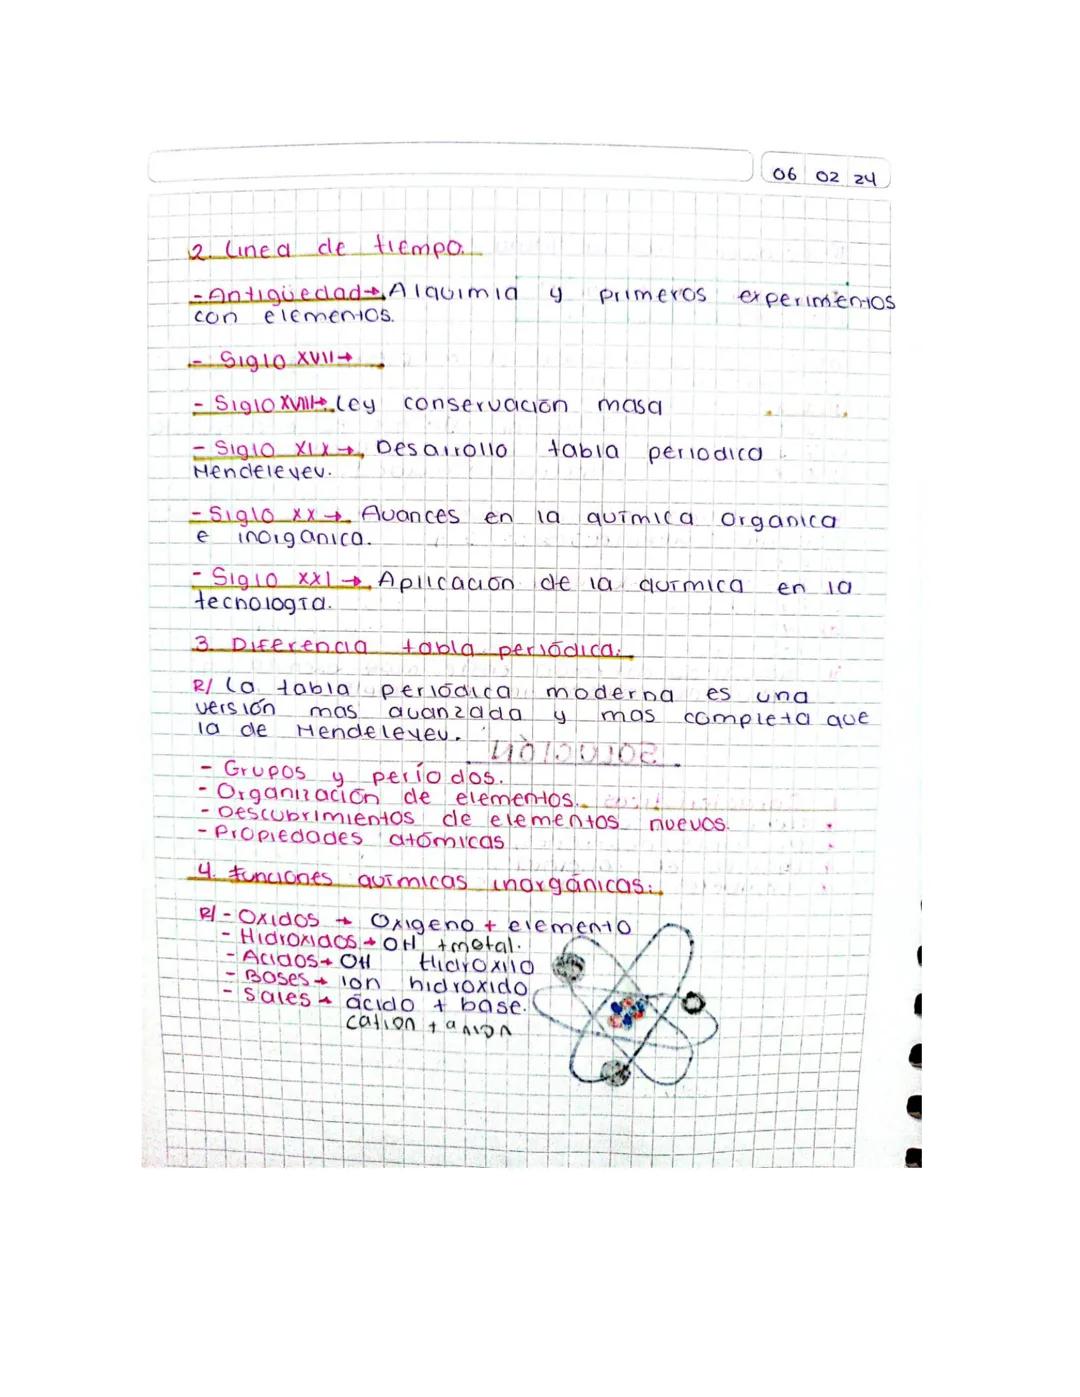 06 02 24
2. Linea de tiempo.
- Antigüedad → Alquimia y primeros experimentos
con elementos.
- Siglo XVII →
- Siglo XVIII → Ley conservación masa
- Siglo XIX → Desarrollo tabla periodica
Mendeleyev.
- Siglo XX → Avances en la química organica
e inorganica.
- Siglo XXI → Aplicación de la química en la
tecnología.
3. Diferencia tabla periódica:
R/ La tabla periódica moderna es una
versión mas avanzada y mas completa que
la de Mendeleyev.
- Grupos y períodos.
- Organización de elementos.
- Descubrimientos de elementos nuevos.
- Propiedades atómicas
4. funciones químicas inorgánicas:
R/ - Oxidos → Oxigeno + elemento
- Hidroxidos → OH + metal.
- Acidos → OH Hidroxilo
- Bases → ion hidroxido
- Sales → ácido + base.
cation + anion